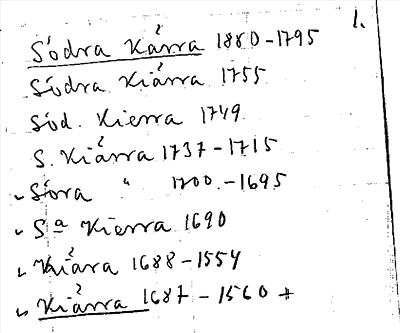 1.
Södra Kärra 1880-1795
Södra Kiärra 1755
Söd. Kierra 1749
S. Kiärra 1737-1715
Siöra " 1700.-1695
Sª Kierra 1690
Kiära 1688-1554
Kiärra 1687-1560 +